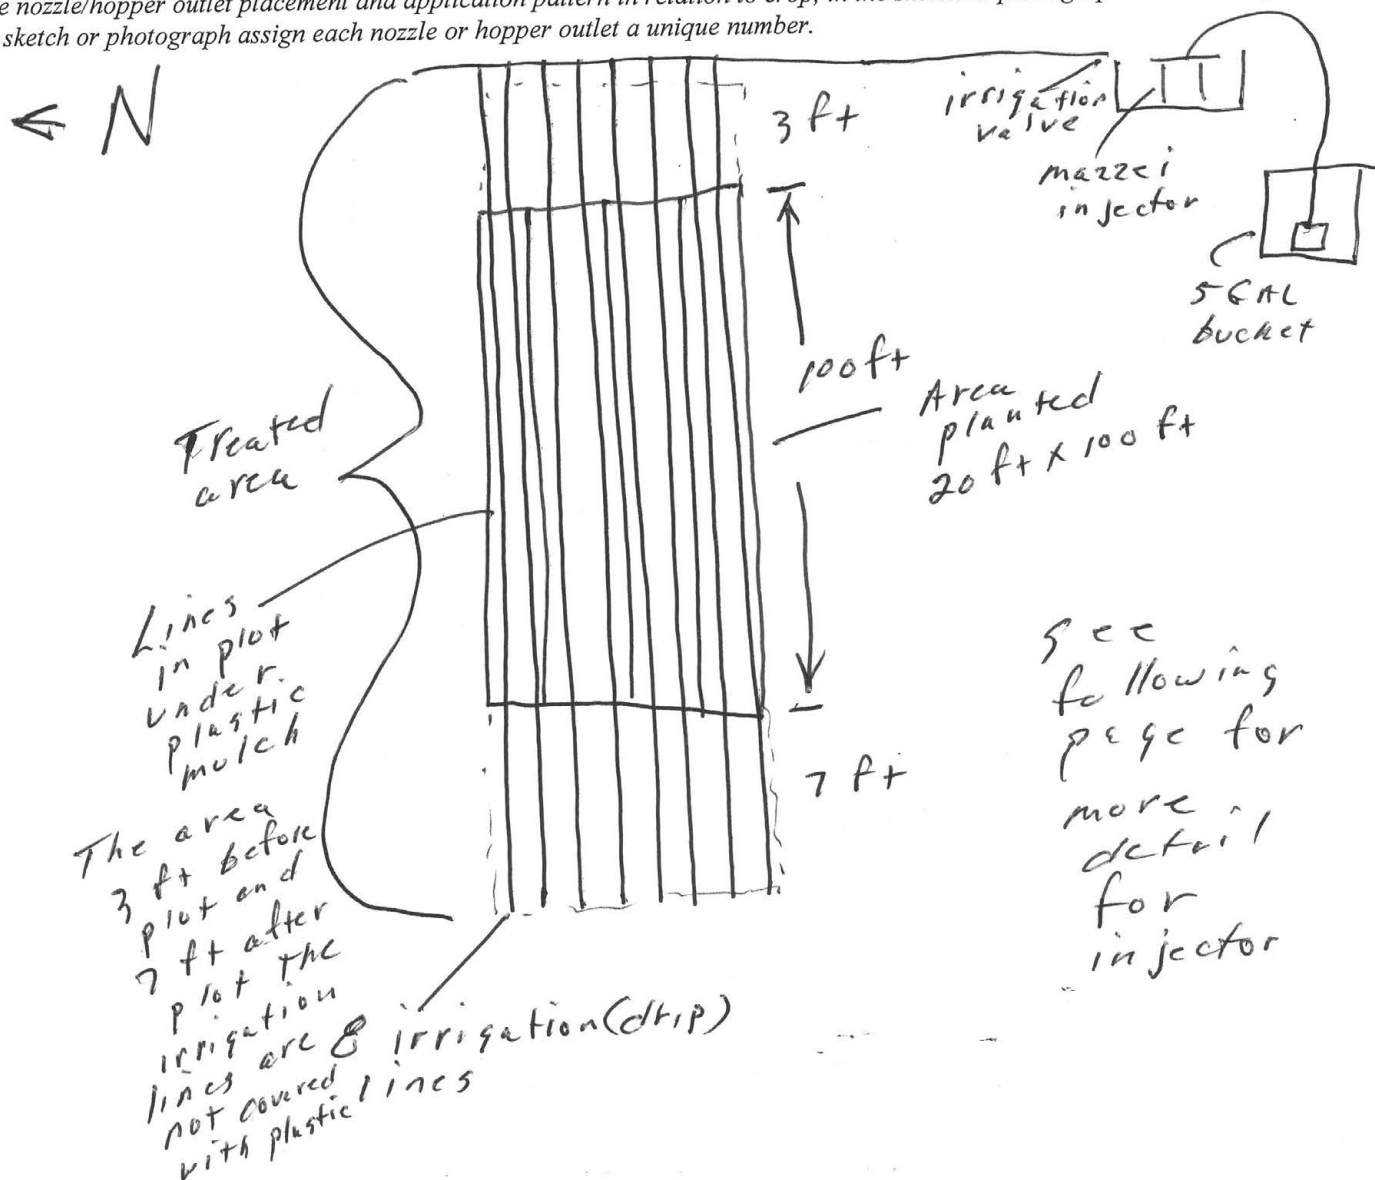 e nozzle/hopper outlet placement and application pattern in relation to crop, in the
sketch or photograph assign each nozzle or hopper outlet a unique number.
← N
3 ft
irrigation
valve
mazzei
injector
5 GAL
bucket
100ft
Area
planted
20 ft x 100 ft
Treated
area
Lines
in plot
under
plastic
mulch
see
following
page for
more
detail
for
injector
7 ft
The area
3 ft before
plot and
7 ft after
plot the
irrigation
lines are
not covered
with plastic
8 irrigation (drip)
lines